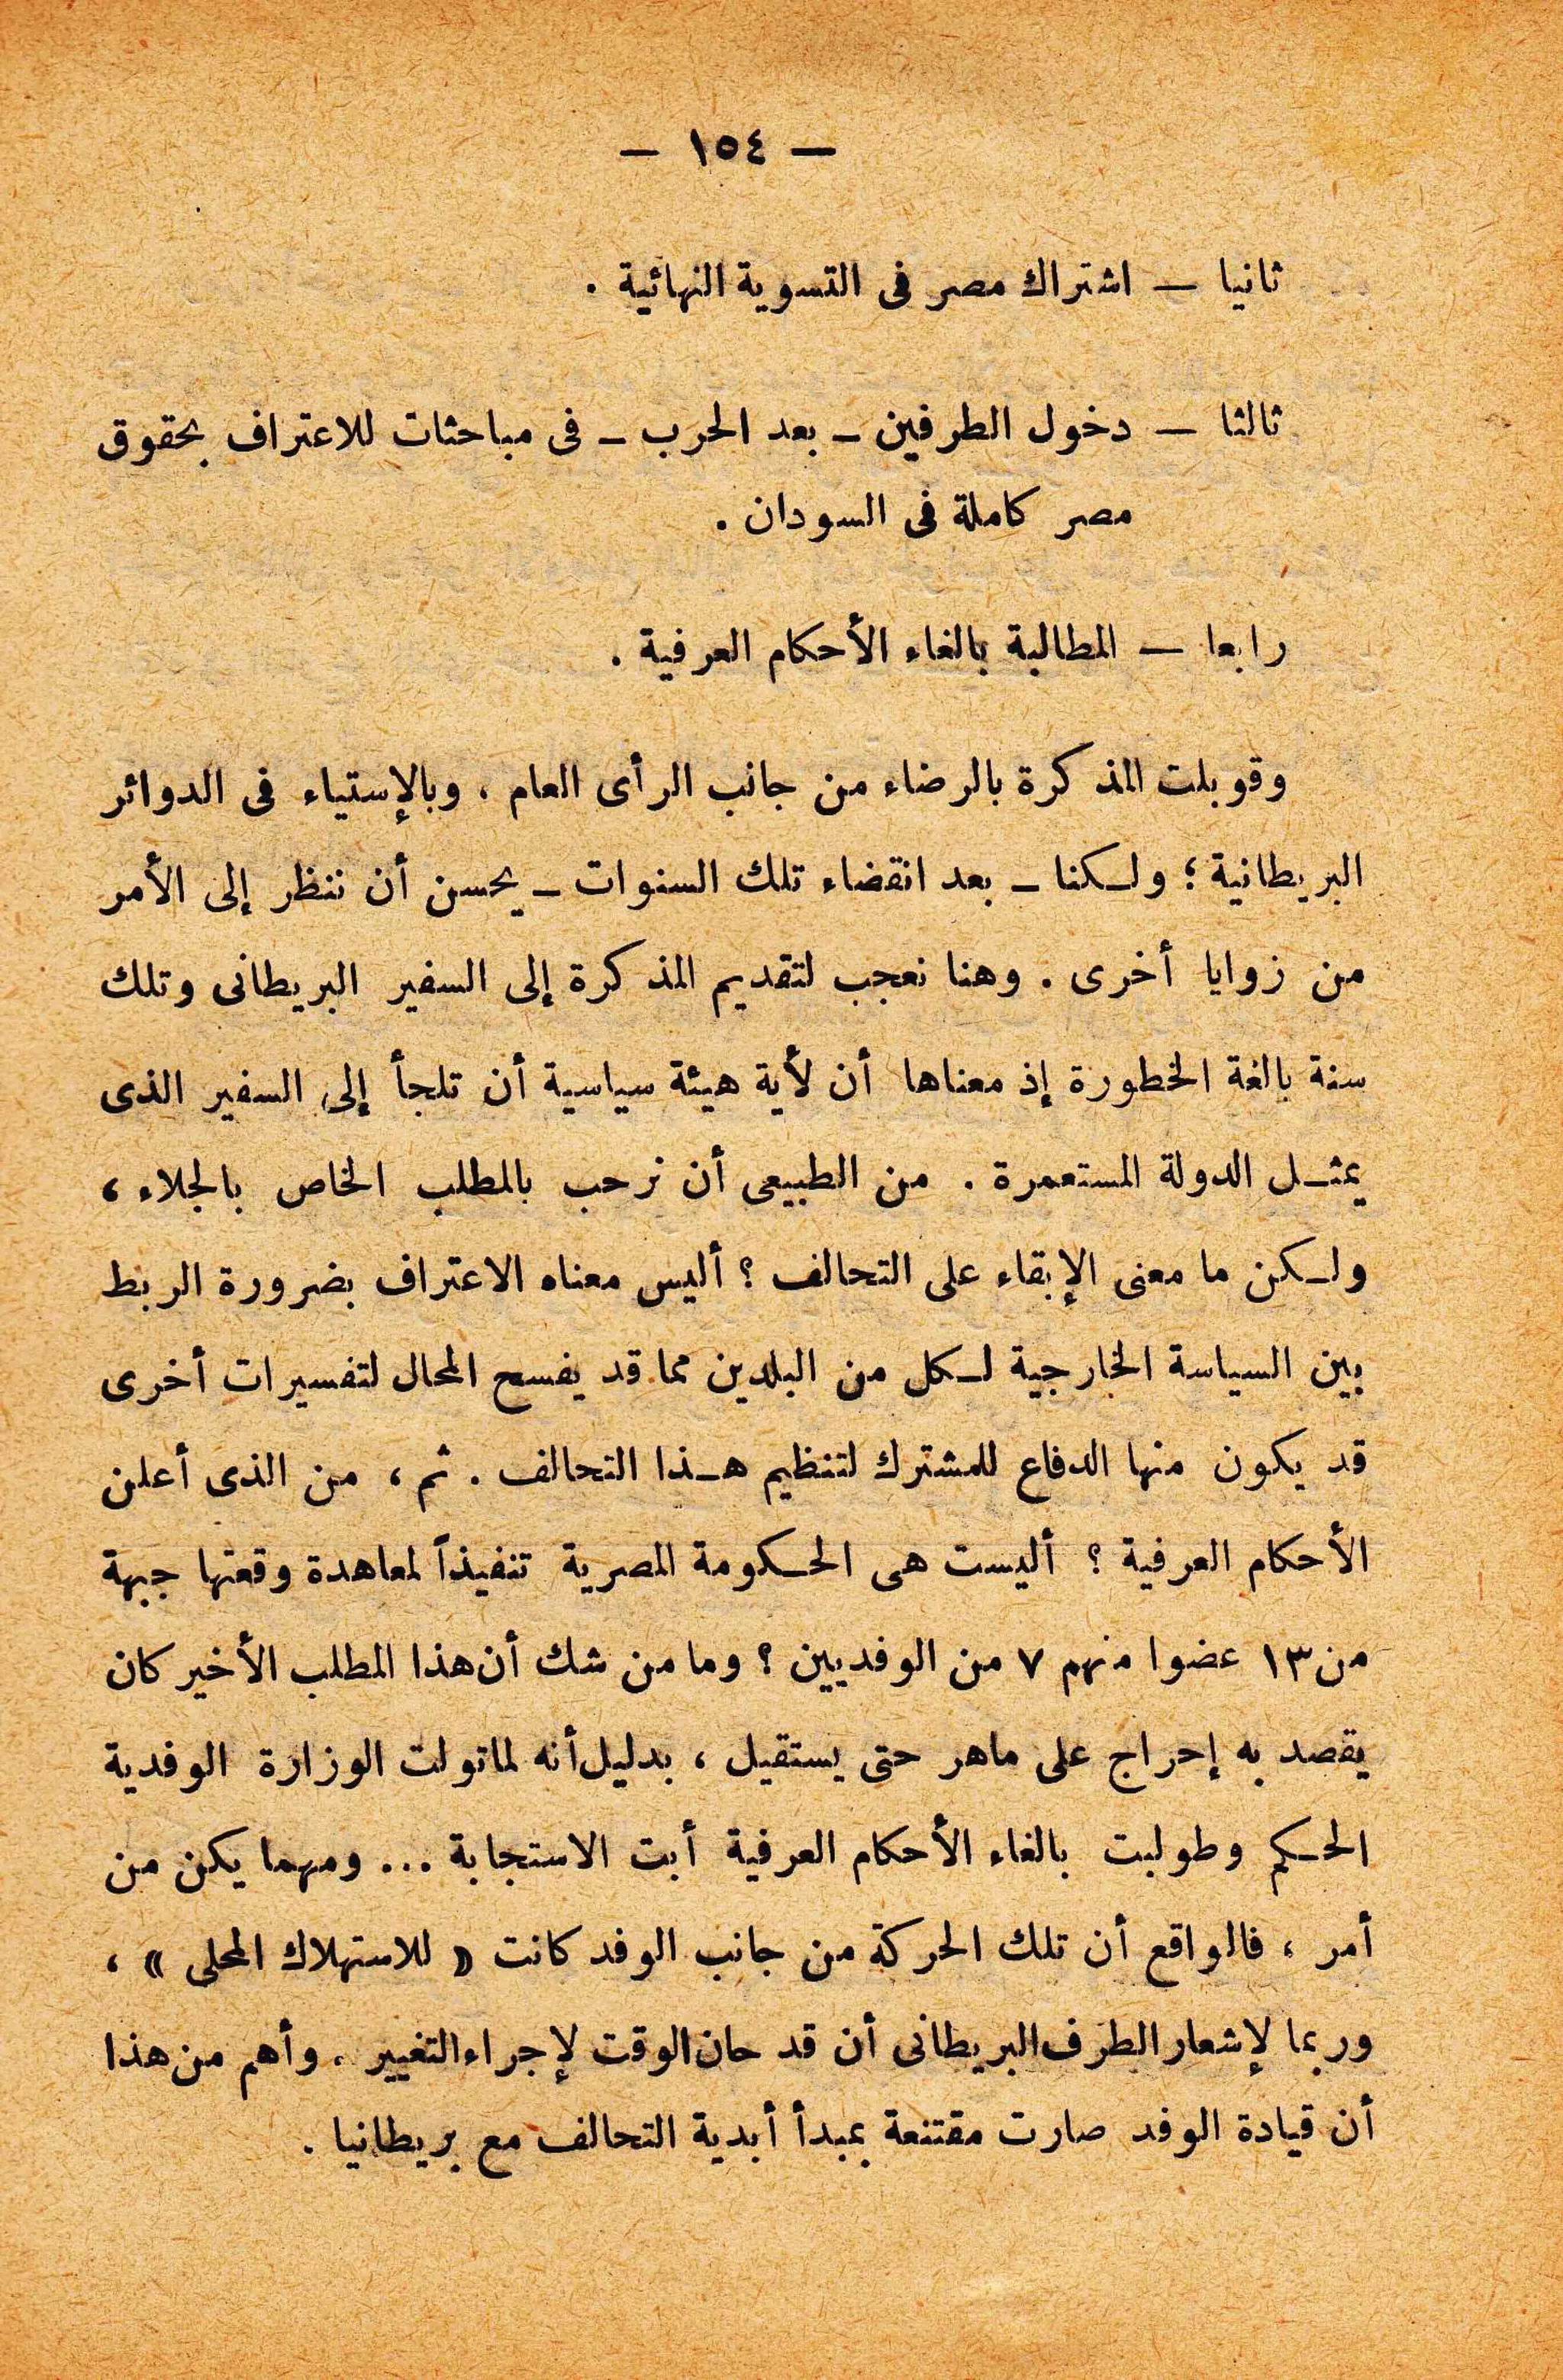 — ١٥٤ —
ثانيا — اشتراك مصر فى التسوية النهائية .
ثالثا — دخول الطرفين – بعد الحرب – فى مباحثات للاعتراف بحقوق
مصر كاملة فى السودان .
رابعا — المطالبة بالغاء الأحكام العرفية .
وقوبلت المذكرة بالرضاء من جانب الرأى العام ، وبالإستياء فى الدوائر
البريطانية ؛ ولكنا – بعد انقضاء تلك السنوات – يحسن أن ننظر إلى الأمر
من زوايا أخرى . وهنا نعجب لتقديم المذكرة إلى السفير البريطانى وتلك
سنة بالغة الخطورة إذ معناها أن لأية هيئة سياسية أن تلجأ إلى السفير الذى
يمثل الدولة المستعمرة . من الطبيعى أن نرحب بالمطلب الخاص بالجلاء ،
ولكن ما معنى الإبقاء على التحالف ؟ أليس معناه الاعتراف بضرورة الربط
بين السياسة الخارجية لكل من البلدين مما قد يفسح المحال لتفسيرات أخرى
قد يكون منها الدفاع للمشترك لتنظيم هذا التحالف . ثم ، من الذى أعلن
الأحكام العرفية ؟ أليست هى الحكومة المصرية تنفيذاً لمعاهدة وقعتها جبهة
من ١٣ عضوا منهم ٧ من الوفديين ؟ وما من شك أن هذا المطلب الأخير كان
يقصد به إحراج على ماهر حتى يستقيل ، بدليل أنه لما تولت الوزارة الوفدية
الحكم وطولبت بالغاء الأحكام العرفية أبت الاستجابة ... ومهما يكن من
أمر ، فالواقع أن تلك الحركة من جانب الوفد كانت « للاستهلاك المحلى » ،
وربما لإشعار الطرف البريطانى أن قد حان الوقت لإجراء التغيير . وأهم من هذا
أن قيادة الوفد صارت مقتنعة بمبدأ أبدية التحالف مع بريطانيا .